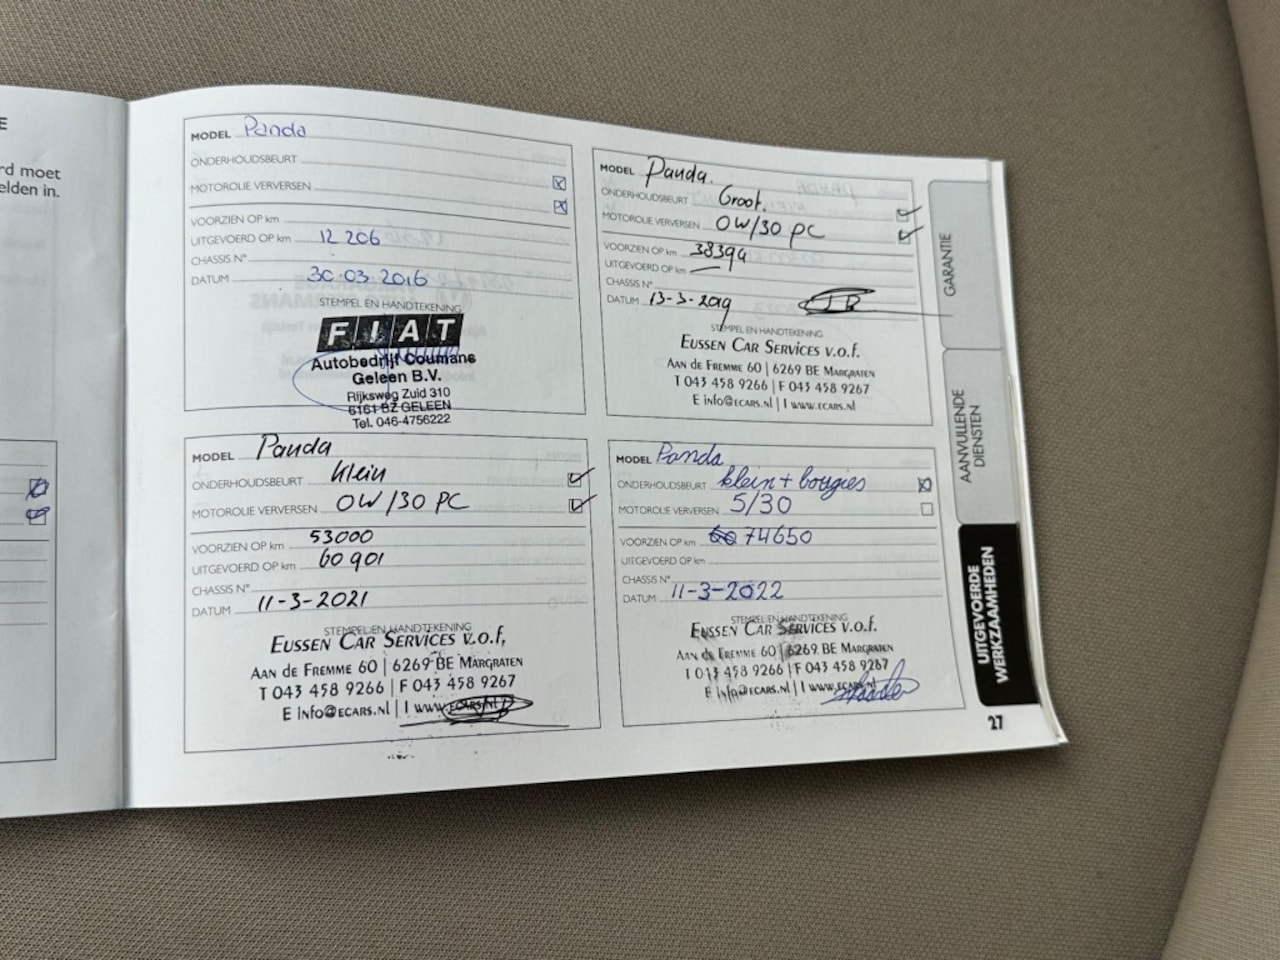 E
rd moet
elden in.
MODEL Panda
ONDERHOUDSBEURT
MOTOROLIE VERVERSEN
VOORZIEN OP km
UITGEVOERD OP km 12 206
CHASSIS N°
DATUM 30-03-2016
STEMPEL EN HANDTEKENING
FIAT
Autobedrijf Coumans
Geleen B.V.
Rijksweg Zuid 310
6161 BZ GELEEN
Tel. 046-4756222
MODEL Panda.
ONDERHOUDSBEURT Groot.
MOTOROLIE VERVERSEN 0W/30 PC
VOORZIEN OP km 38394
UITGEVOERD OP km —
CHASSIS N°
DATUM 13-3-2019
STEMPEL EN HANDTEKENING
EUSSEN CAR SERVICES V.O.F.
AAN DE FREMME 60 | 6269 BE MARGRATEN
T 043 458 9266 | F 043 458 9267
E INFO@ECARS.NL | I WWW.ECARS.NL
MODEL Panda
ONDERHOUDSBEURT Klein
MOTOROLIE VERVERSEN 0W/30 PC
VOORZIEN OP km 53000
UITGEVOERD OP km 60 901
CHASSIS N°
DATUM 11-3-2021
STEMPEL EN HANDTEKENING
EUSSEN CAR SERVICES V.O.F.
AAN DE FREMME 60 | 6269 BE MARGRATEN
T 043 458 9266 | F 043 458 9267
E INFO@ECARS.NL | I WWW.ECARS.NL
MODEL Panda
ONDERHOUDSBEURT klein + bougies
MOTOROLIE VERVERSEN 5/30
VOORZIEN OP km 74650
UITGEVOERD OP km
CHASSIS N°
DATUM 11-3-2022
STEMPEL EN HANDTEKENING
EUSSEN CAR SERVICES V.O.F.
AAN DE FREMME 60 | 6269 BE MARGRATEN
T 043 458 9266 | F 043 458 9267
E INFO@ECARS.NL | I WWW.ECARS.NL
GARANTIE
AANVULLENDE
DIENSTEN
UITGEVOERDE
WERKZAAMHEDEN
27